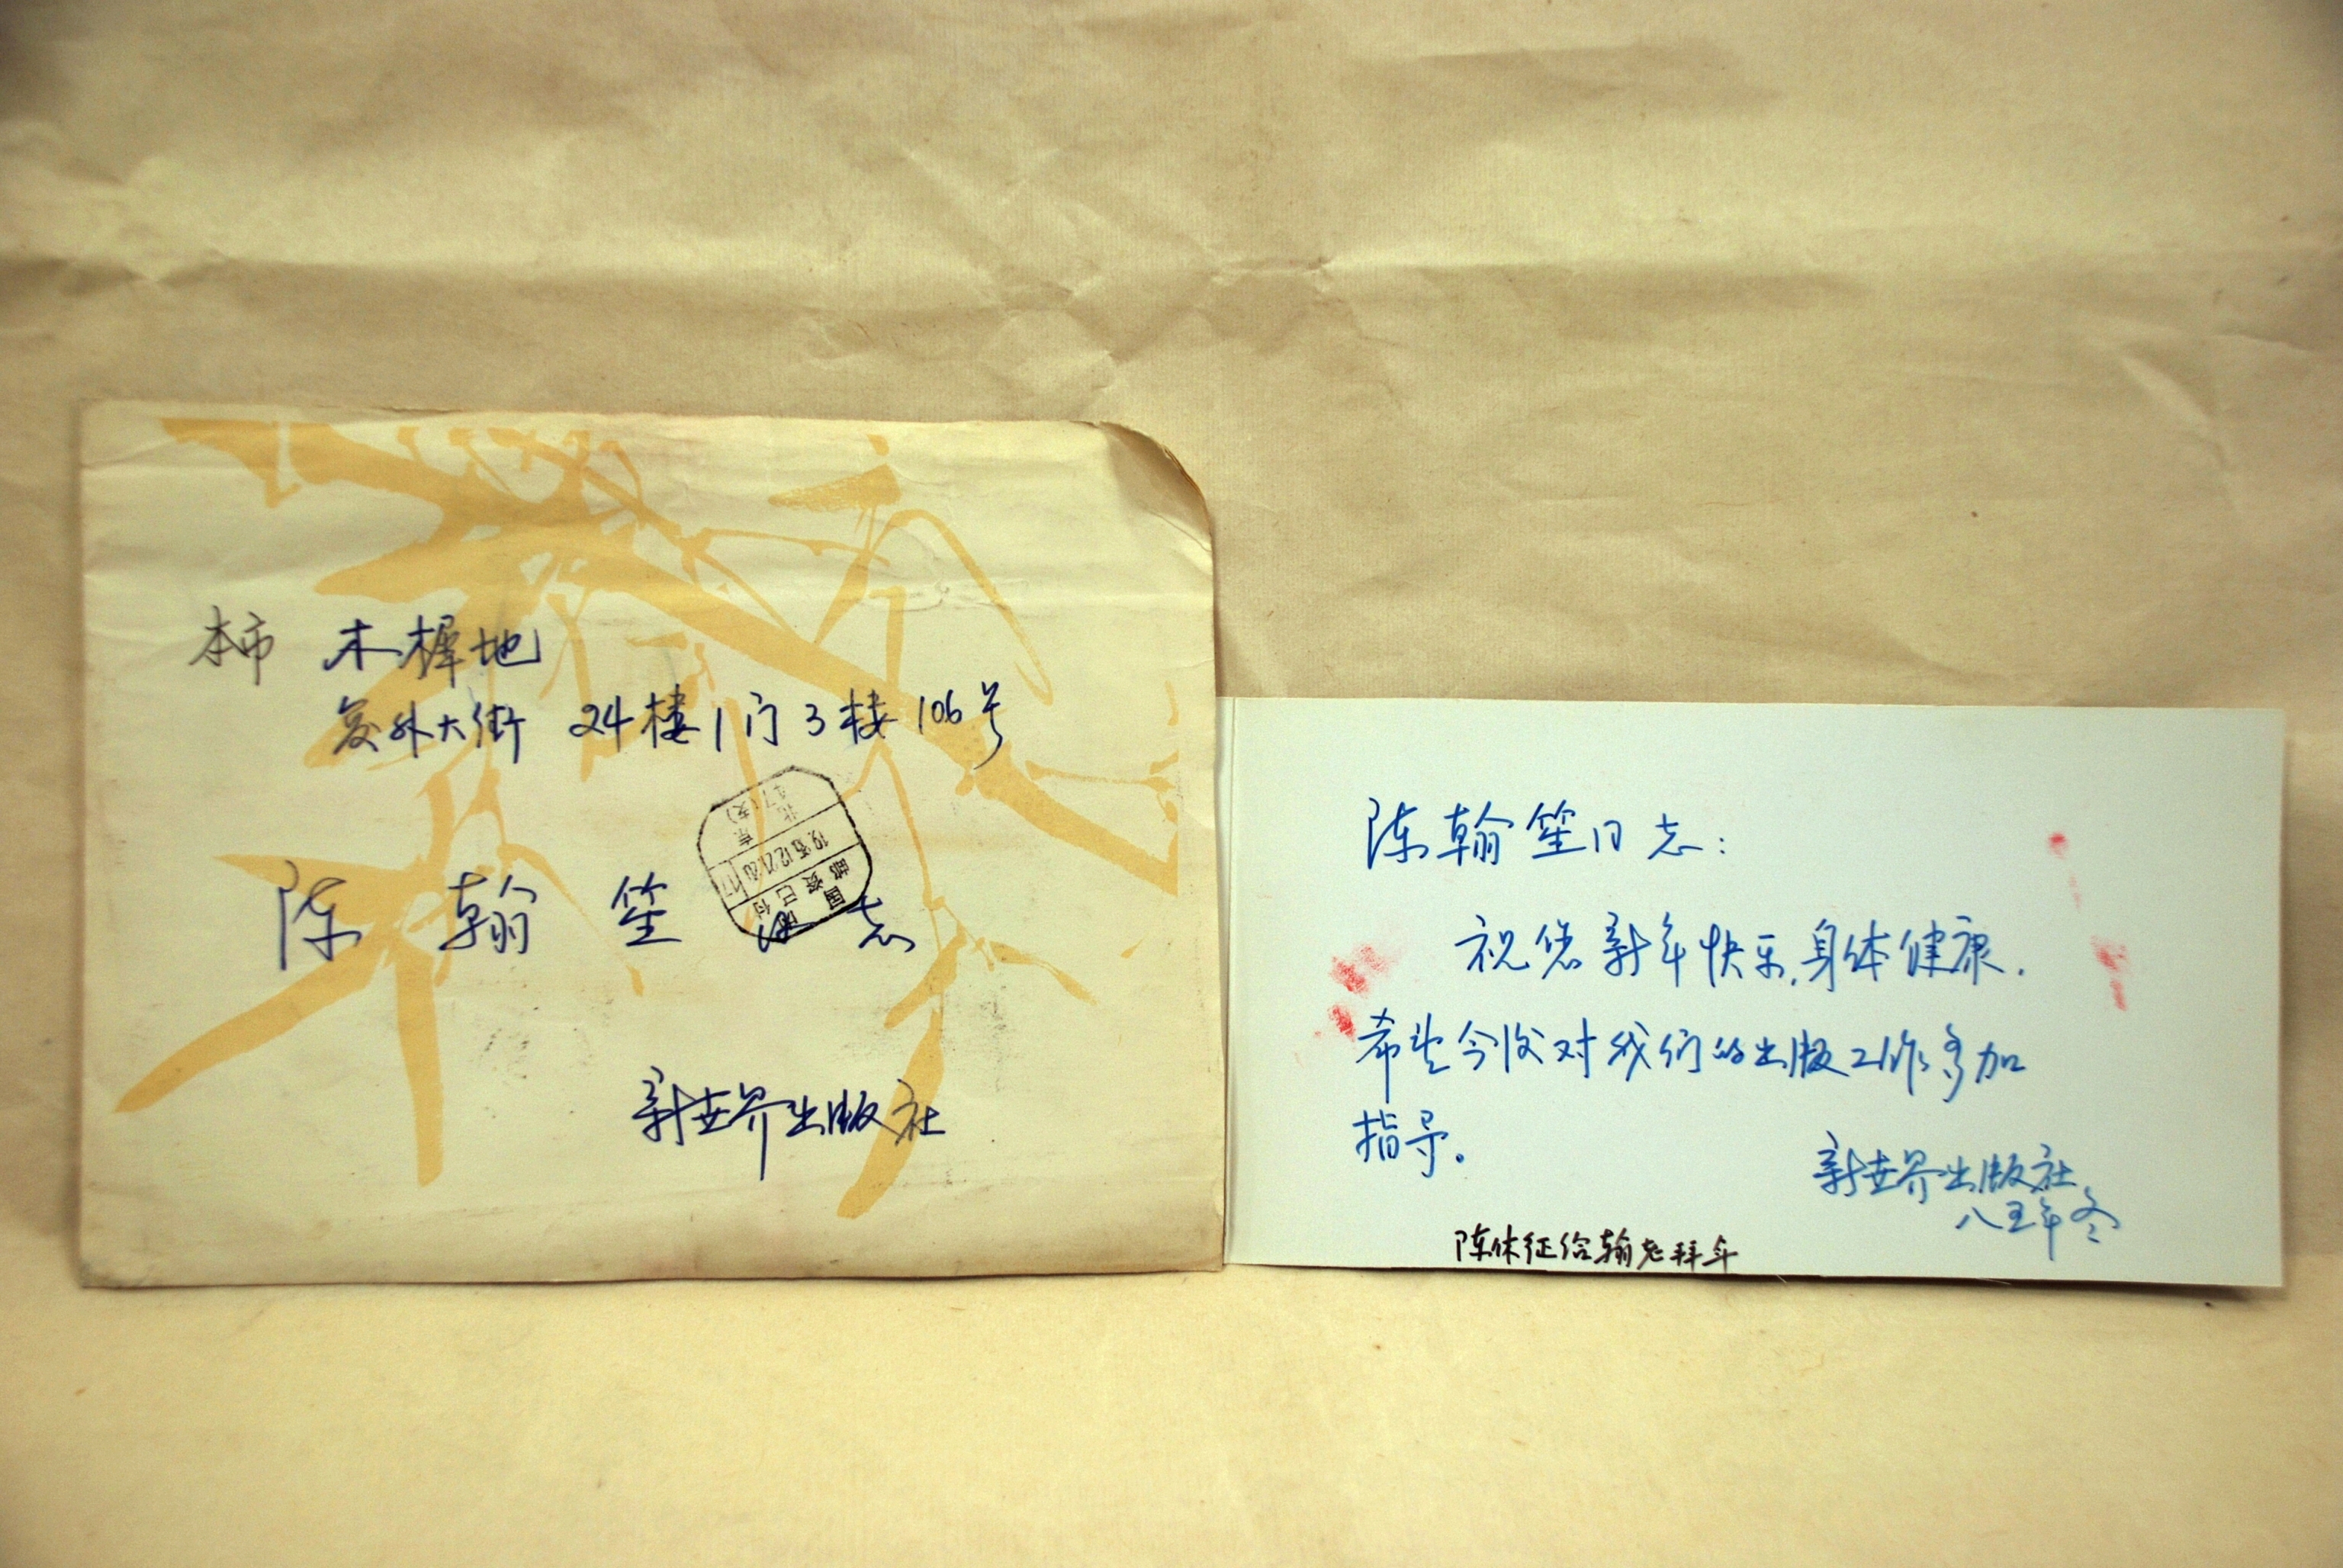 本市 木樨地
复外大街 24楼1门3楼106号
陈翰笙同志
新世界出版社
北京
47(支)
1985.12.21.20
国内
邮资已付
陈翰笙同志:
祝您新年快乐,身体健康.
希望今后对我们的出版工作多加
指导。
新世界出版社
八五年冬
陈休征给翰老拜年